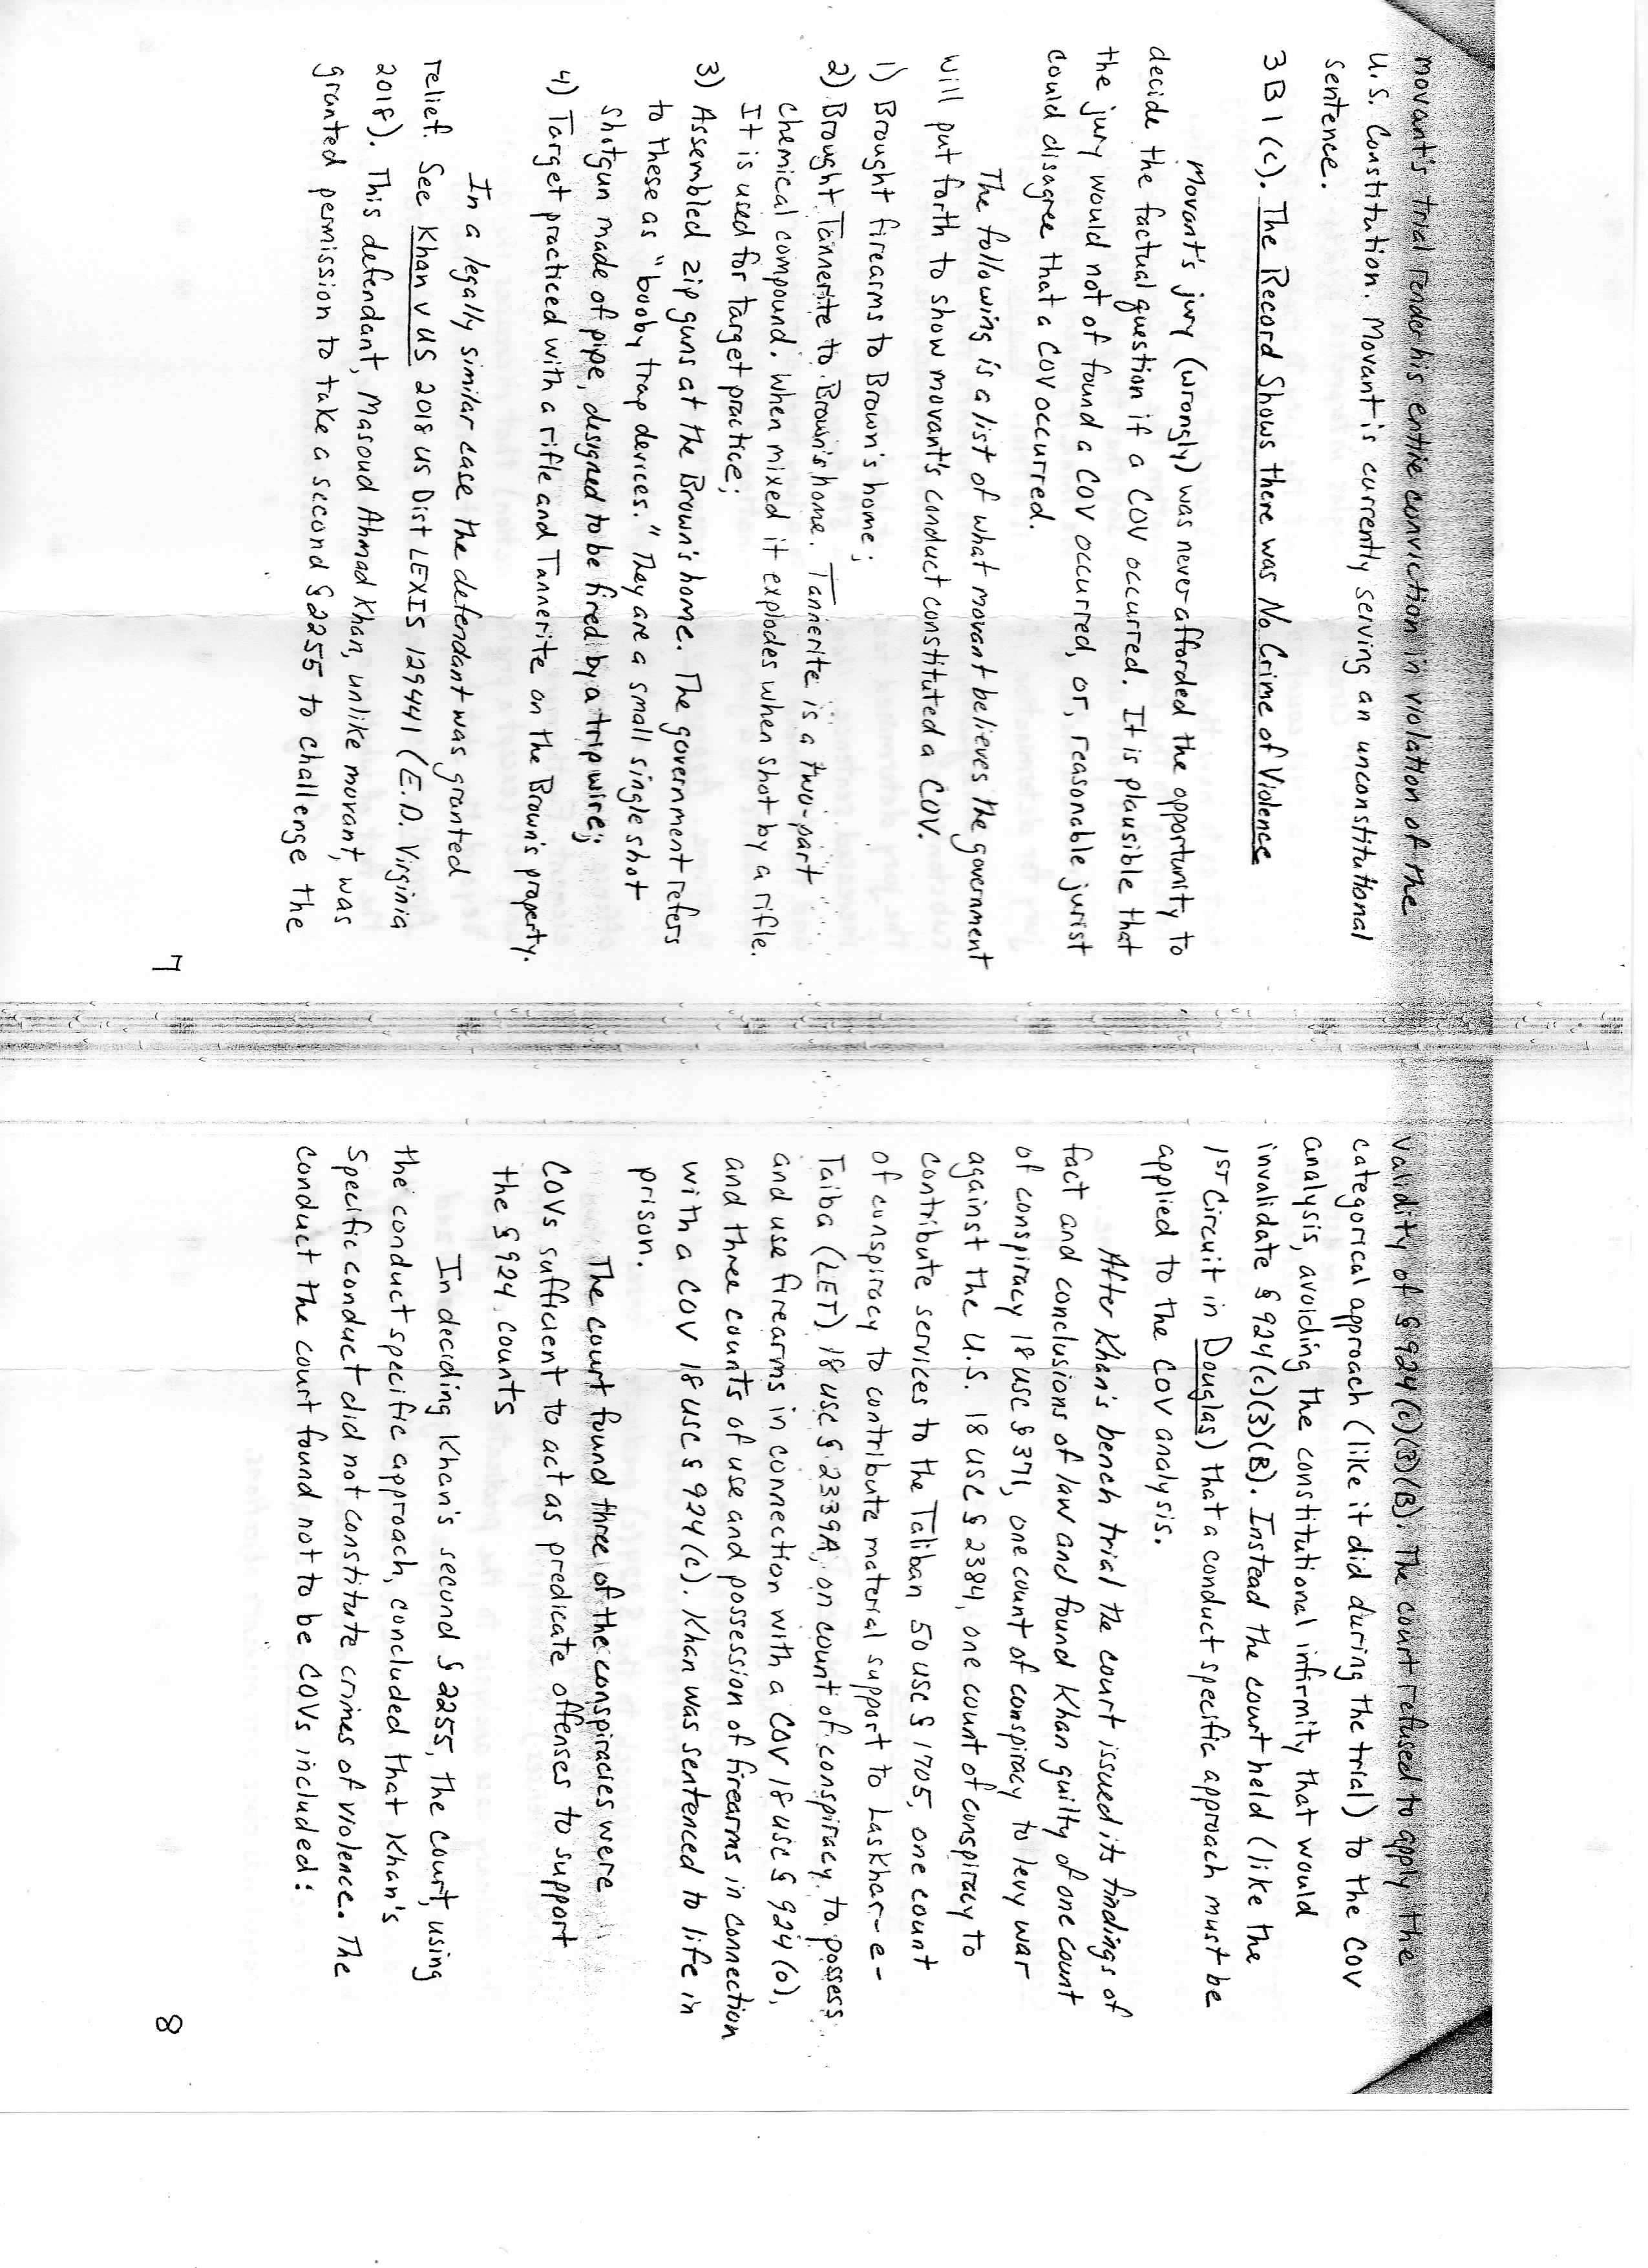 movant's trial render his entire conviction in violation of the
U.S. Constitution. Movant is currently serving an unconstitutional
sentence.
3B1(c). The Record Shows there was No Crime of Violence
Movant's jury (wrongly) was never afforded the opportunity to
decide the factual question if a COV occurred. It is plausible that
the jury would not of found a COV occurred, or, reasonable jurist
could disagree that a COV occurred.
The following is a list of what movant believes the government
will put forth to show movant's conduct constituted a COV.
1) Brought firearms to Brown's home;
2) Brought Tannerite to Brown's home. Tannerite is a two-part
chemical compound. When mixed it explodes when shot by a rifle.
It is used for target practice;
3) Assembled zip guns at the Brown's home. The government refers
to these as "booby trap devices." They are a small single shot
shotgun made of pipe, designed to be fired by a trip wire;
4) Target practiced with a rifle and Tannerite on the Brown's property.
In a legally similar case the defendant was granted
relief. See Khan v US 2018 US Dist LEXIS 129441 (E.D. Virginia
2018). This defendant, Masoud Ahmad Khan, unlike movant, was
granted permission to take a second § 2255 to challenge the
7
validity of § 924(c)(3)(B). The court refused to apply the
categorical approach (like it did during the trial) to the COV
analysis, avoiding the constitutional infirmity that would
invalidate § 924(c)(3)(B). Instead the court held (like the
1ST Circuit in Douglas) that a conduct specific approach must be
applied to the COV analysis.
After Khan's bench trial the court issued its findings of
fact and conclusions of law and found Khan guilty of one count
of conspiracy 18 USC § 371, one count of conspiracy to levy war
against the U.S. 18 USC § 2384, one count of conspiracy to
contribute services to the Taliban 50 USC § 1705, one count
of conspiracy to contribute material support to Laskhar-e-
Taiba (LET) 18 USC § 2339A, on count of conspiracy to possess
and use firearms in connection with a COV 18 USC § 924(o),
and three counts of use and possession of firearms in connection
with a COV 18 USC § 924(c). Khan was sentenced to life in
prison.
The court found three of the conspiracies were
COVs sufficient to act as predicate offenses to support
the § 924 counts
In deciding Khan's second § 2255, the court, using
the conduct specific approach, concluded that Khan's
specific conduct did not constitute crimes of violence. The
conduct the court found not to be COVs included:
8